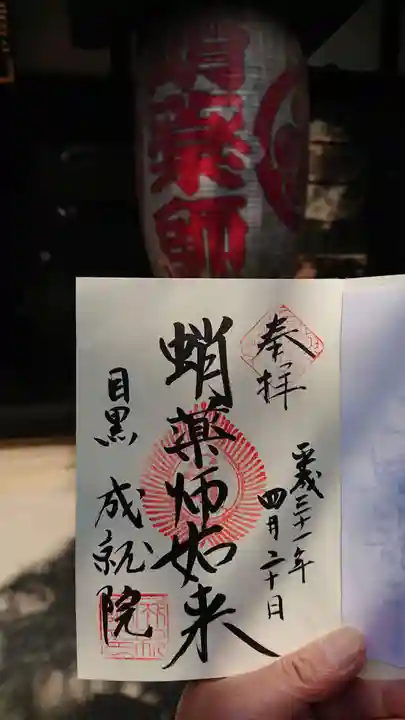 蛸薬師
奉拝
平成三十一年
四月二十日
蛸薬师如来
目黒 成就院